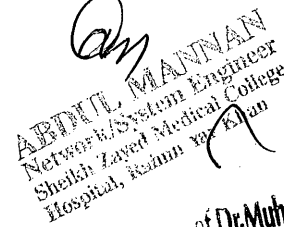 ABDUL MANNAN
Network/System Engineer
Sheikh Zayed Medical College
Hospital, Rahim Yar Khan
of Dr. Muh